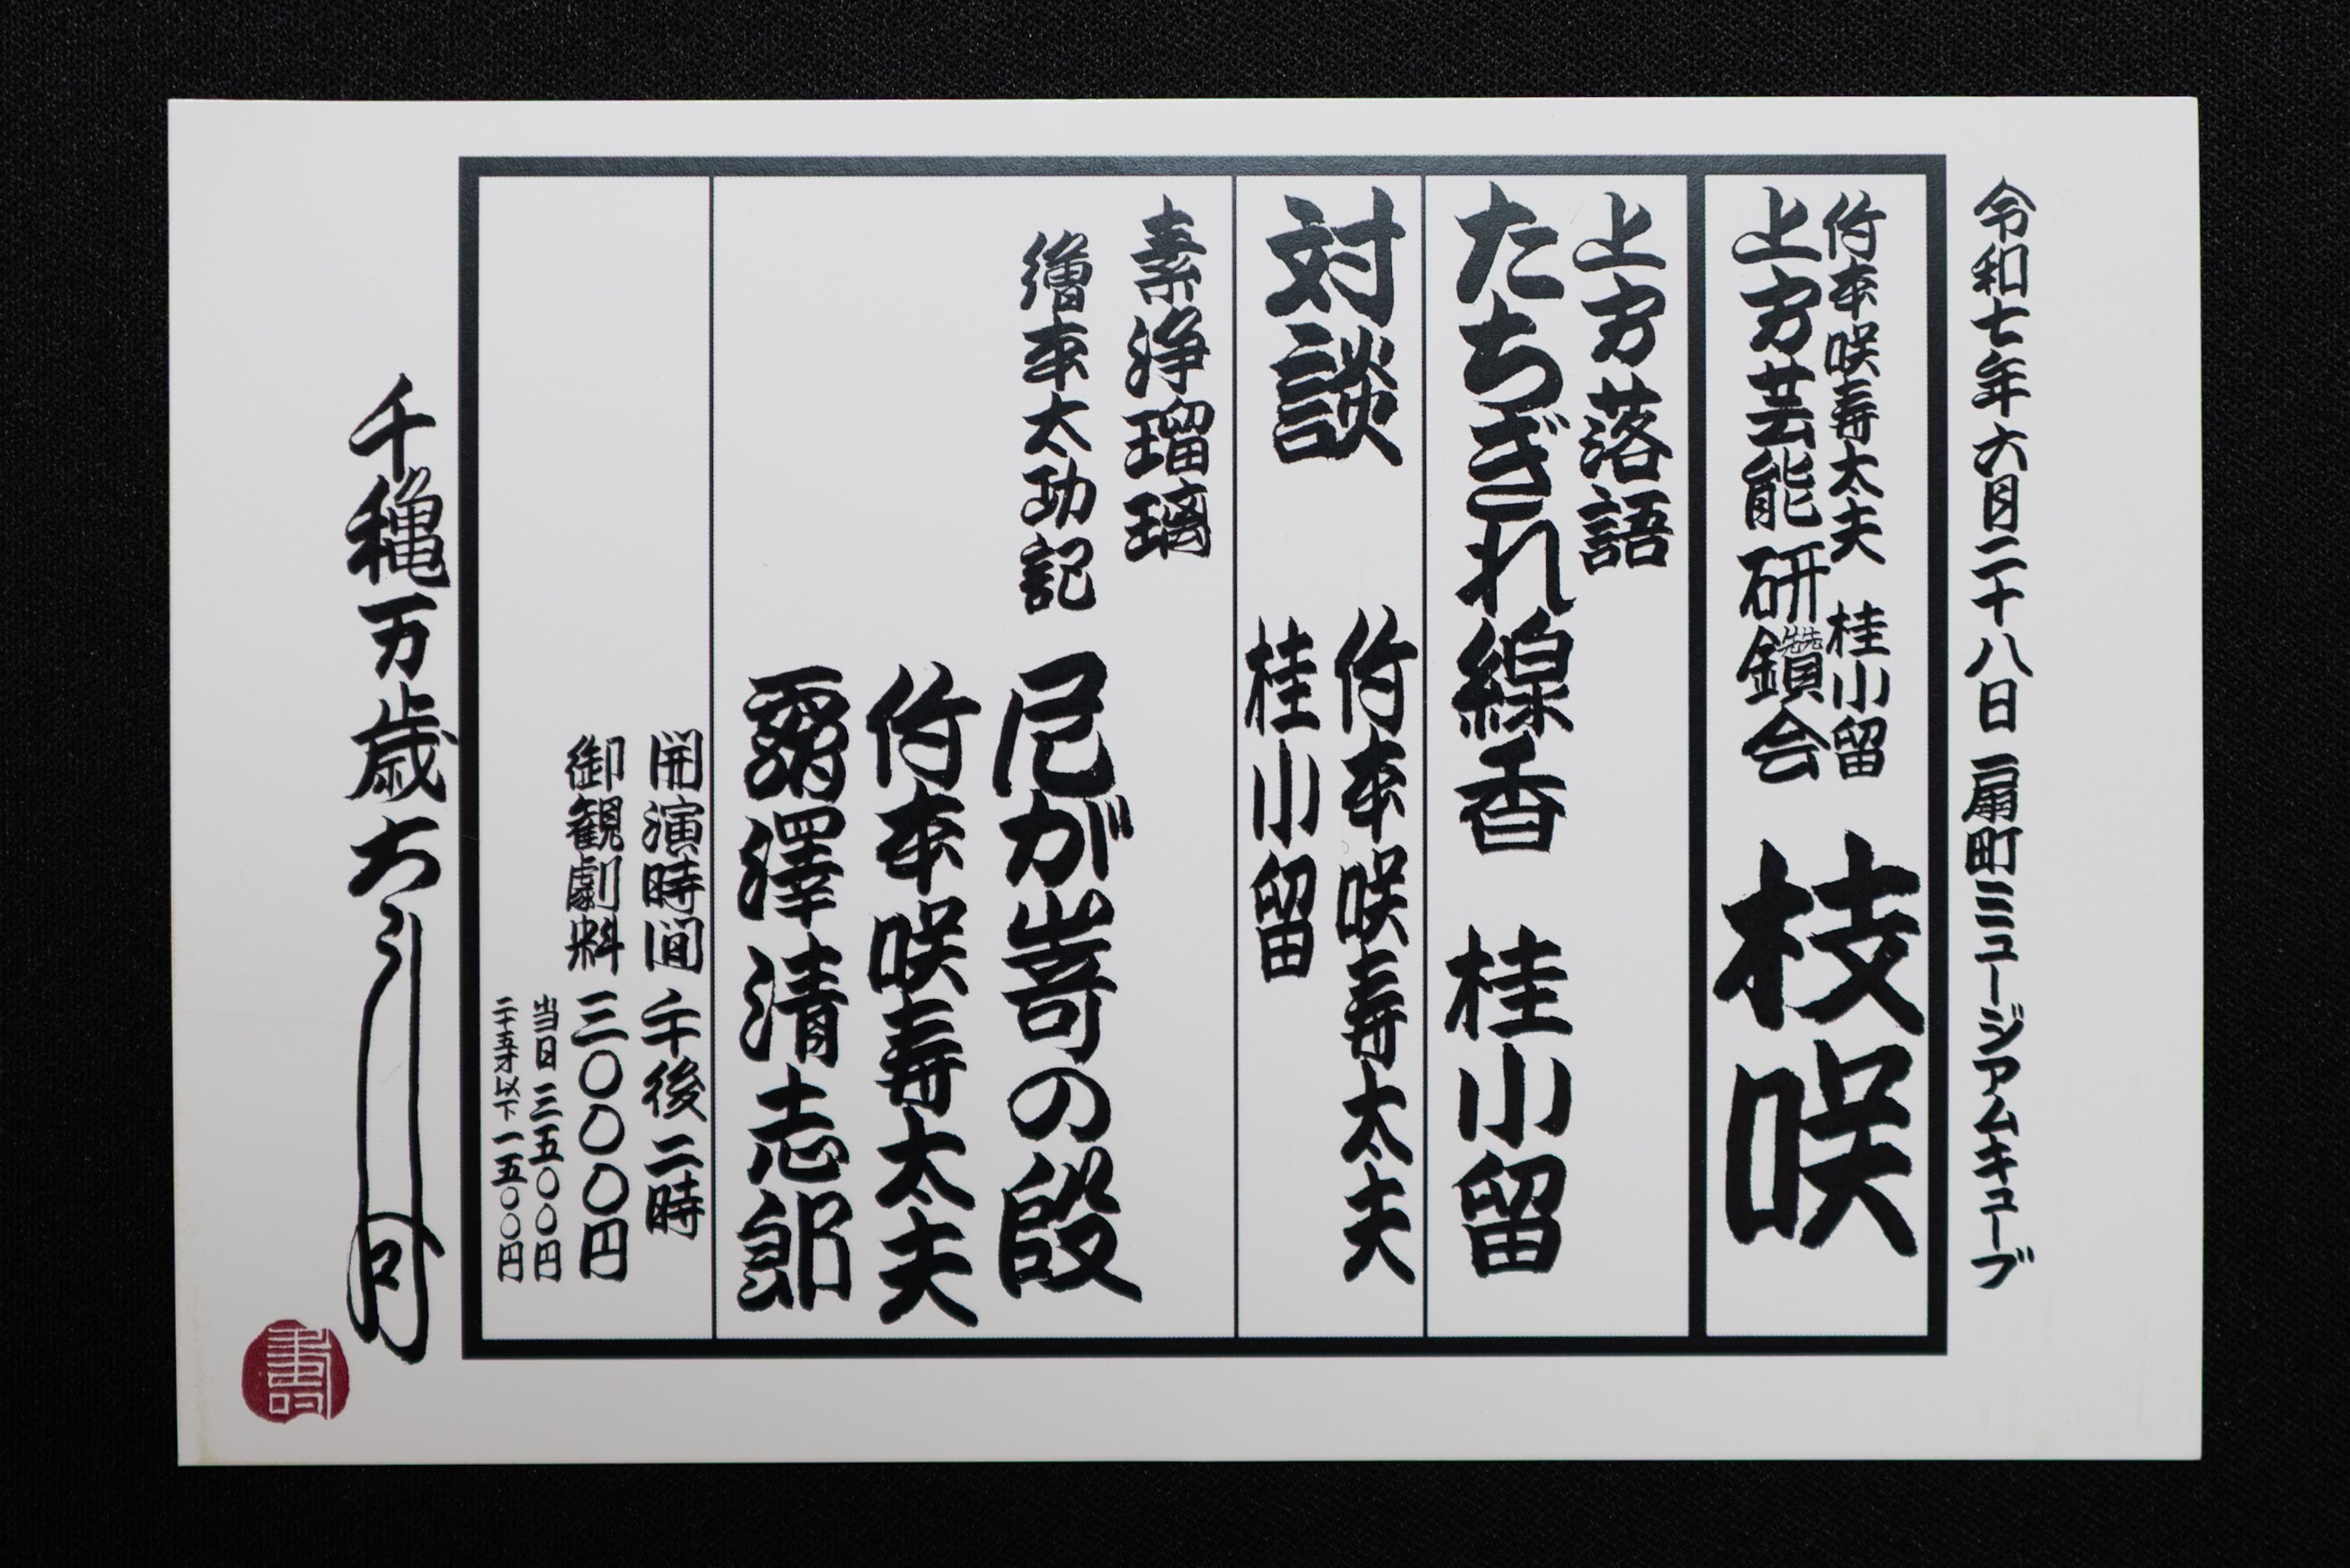 令和七年六月二十八日 扇町ミュージアムキューブ
竹本咲寿太夫 桂小留
上方芸能研鑽会
枝咲
上方落語
たちぎれ線香 桂小留
対談
竹本咲寿太夫
桂小留
素浄瑠璃
繪本太功記
尼が嵜の段
竹本咲寿太夫
靏澤清志郎
開演時間 午後二時
御観劇料 三〇〇〇円
当日 三五〇〇円
二十五才以下 一五〇〇円
千穐万歳大入叶